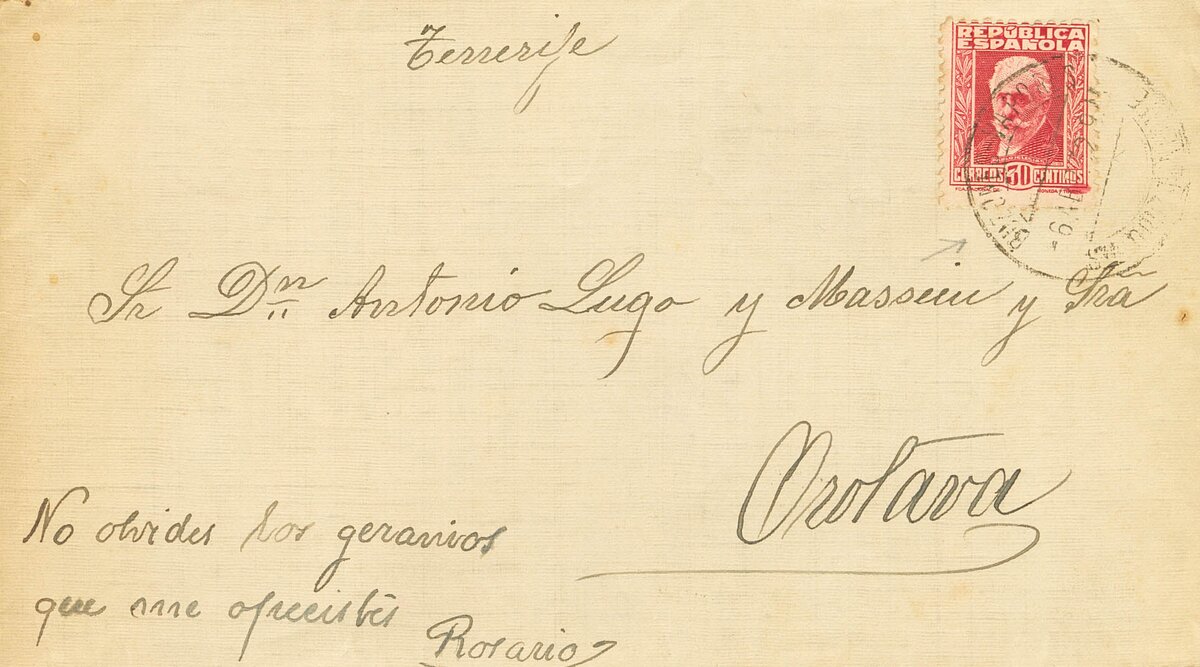 Tenerife
REPÚBLICA
ESPAÑOLA
CORREOS 30 CENTIMOS
Sr Dn Antonio Lugo y Massieu y Sra
Orotava
No olvides los geranios
que me ofrecistes
Rosario